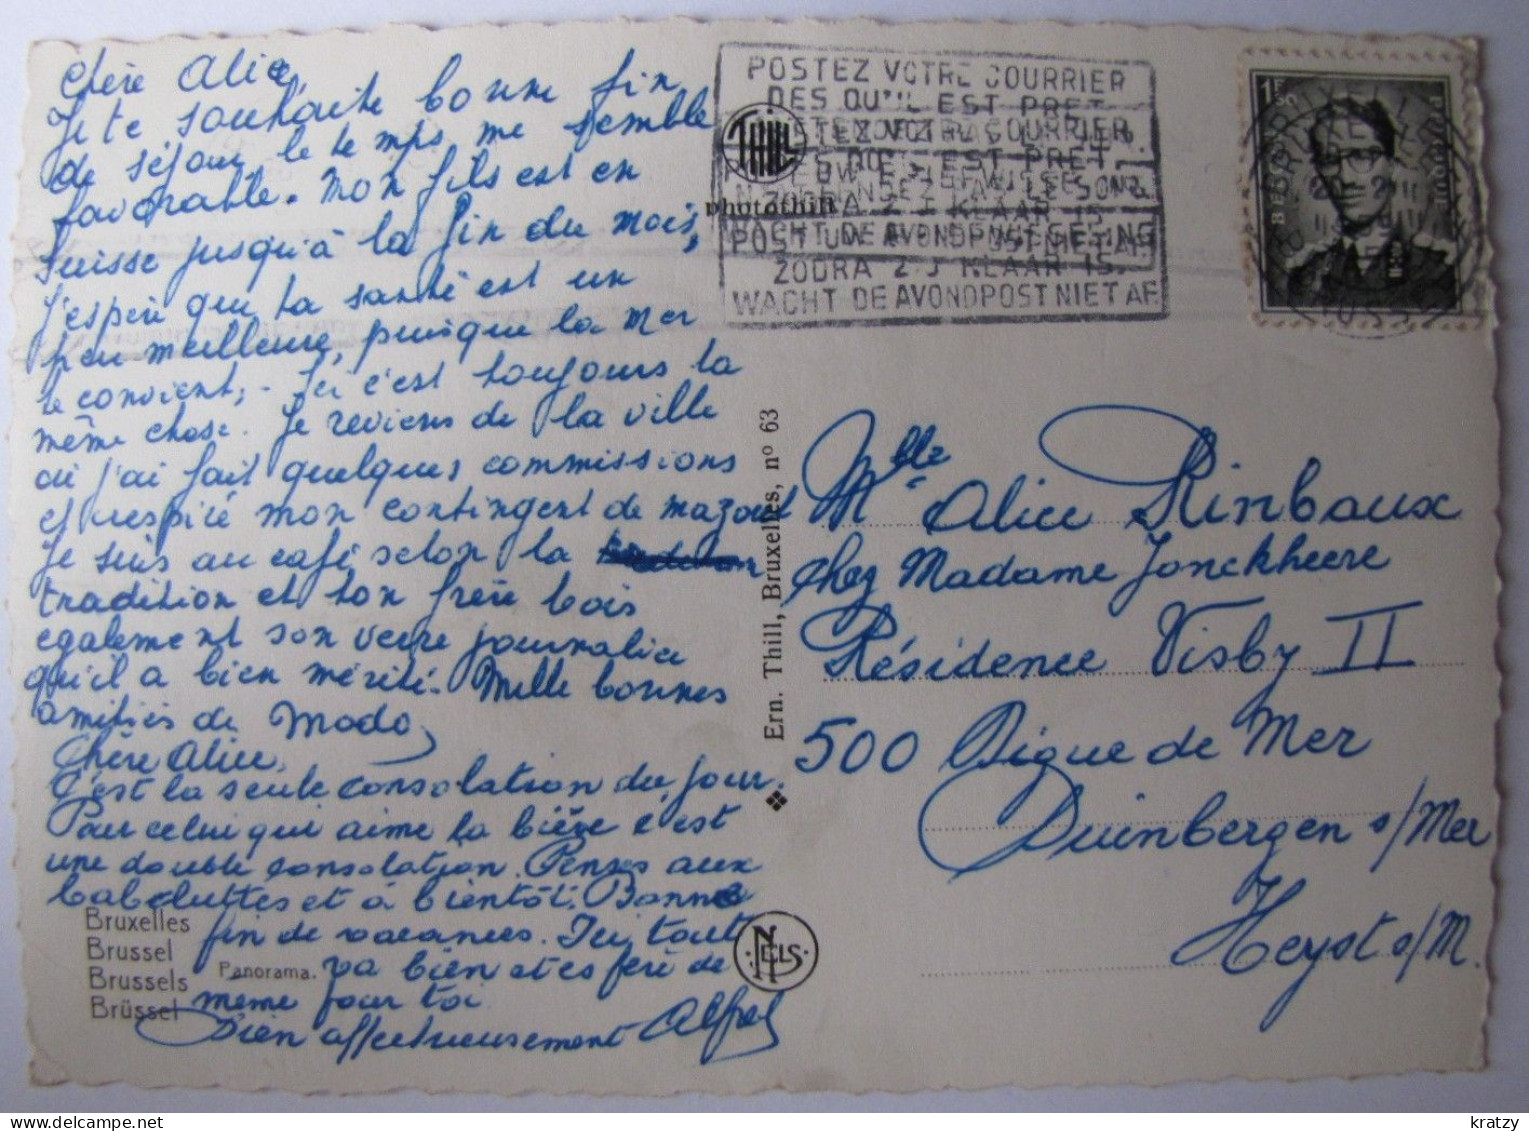 Chère Alice,
Je te souhaite bonne fin
de séjour le temps me semble
favorable. Mon fils est en
Suisse jusqu'à la fin du mois,
J'espère que ta santé est un
peu meilleure, puisque la Mer
te convient, - Ici c'est toujours la
même chose. Je reviens de la ville
où j'ai fait quelques commissions
et respiré mon contingent de mazout
Je suis au café selon la
tradition et ton frère bois
également son verre journalier
qu'il a bien mérité. Mille bonnes
amitiés de Mado,
Chère Alice,
C'est la seule consolation du jour.
Pour celui qui aime la bière c'est
une double consolation. Penses aux
babeluttes et à bientôt. Bonne
fin de vacances. Ici, tout
va bien et espère de
meme pour toi
Bien affectueusement Alfred
Bruxelles
Brussel
Brussels
Brüssel
Panorama.
Ern. Thill, Bruxelles, nº 63
NELS
THILL
photothill
POSTEZ VOTRE COURRIER
DES QU'IL EST PRET
POSTEZ VOTRE COURRIER
DES QU'IL EST PRET
ZODRA Z J KLAAR IS
POST UW
ZODRA Z J KLAAR IS.
WACHT DE AVONDPOST NIET AF
1F50
BELGIE-BELGIQUE
Mlle Alice Rinbaux
chez Madame Jonckheere
Résidence Visby II
500 Digue de Mer
Duinbergen s/Mer
Heyst s/M.
kratzy